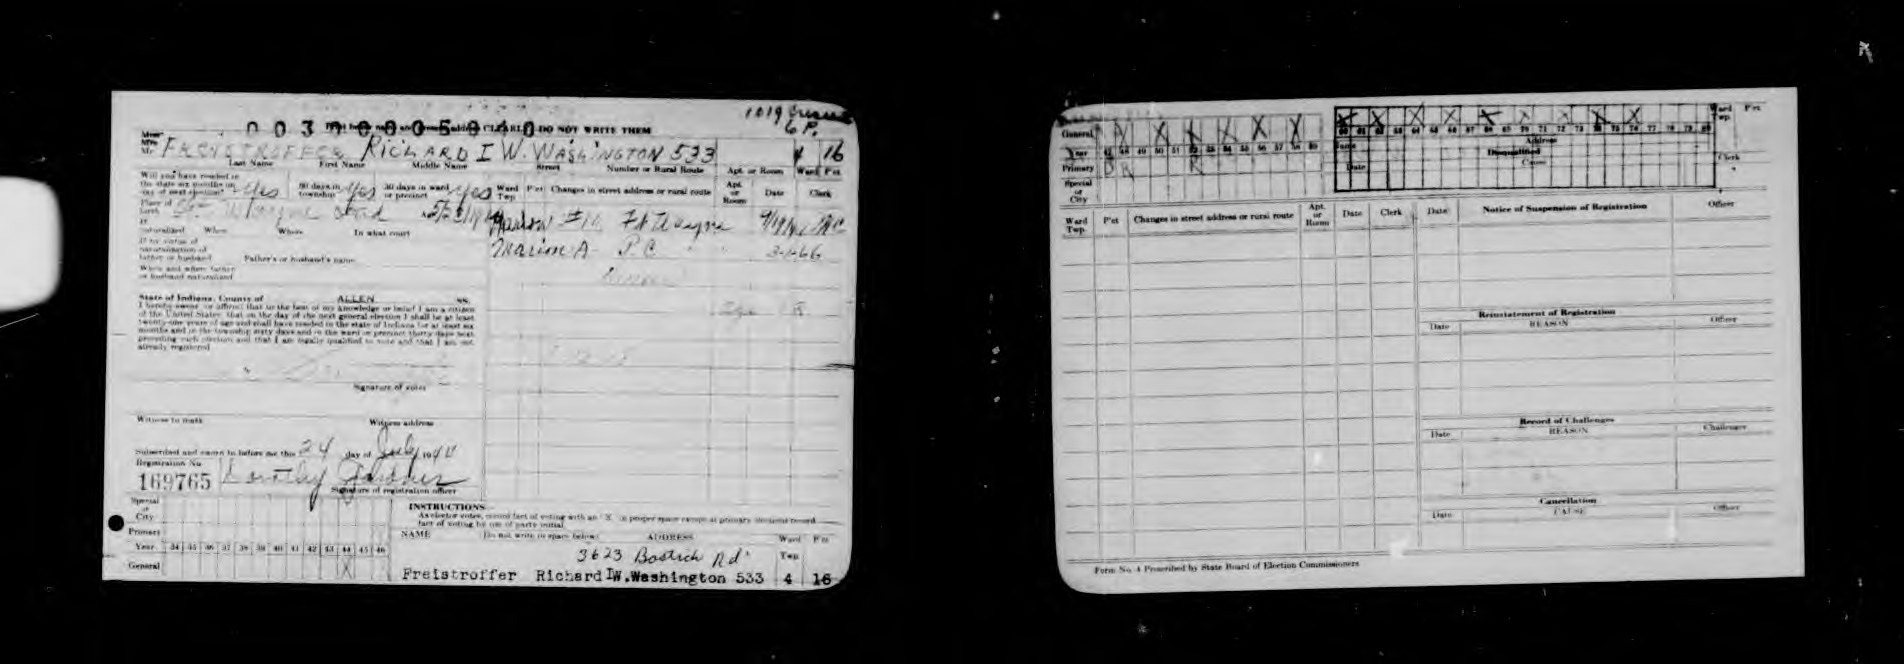 1019
6 P.
DO NOT WRITE THEM
Mr. FREISTROFFER RICHARD I W. WASHINGTON 533 4 16
Last Name First Name Middle Name Street Number or Rural Route Apt. or Room Ward Pct.
Will you have resided in
the state six months on
day of next election? Yes 60 days in township Yes 30 days in ward or precinct Yes
Ward Twp P'ct Changes in street address or rural route Apt. or Room Date Clerk
Place of birth Ft. Wayne Ind
Marion #10 Ft Wayne
If naturalized When Where In what court
Marion A P.C. 3-1-66
If by virtue of
naturalization of
father or husband Father's or husband's name
When and where father
or husband naturalized
State of Indiana, County of ALLEN SS.
I hereby swear or affirm that to the best of my knowledge or belief I am a citizen
of the United States; that on the day of the next general election I shall be at least
twenty-one years of age and shall have resided in the state of Indiana for at least six
months and in the township sixty days and in the ward or precinct thirty days next
preceding such election and that I am legally qualified to vote and that I am not
already registered
Signature of voter
Witness to mark Witness address
Subscribed and sworn to before me this 24 day of July 19
Registration No
169765 Dorothy Gardner
Signature of registration officer
Special or City
Primary
Year 34 35 36 37 38 39 40 41 42 43 44 45 46
General X
INSTRUCTIONS
As elector votes, record fact of voting with an "X" in proper space except at primary elections record
fact of voting by use of party initial.
NAME (Do not write in space below) ADDRESS Ward Pct
3623 Bostick Rd Twp
Freistroffer Richard I W.Washington 533 4 16
General X X X X X X X
Year 47 48 49 50 51 52 53 54 55 56 57 58 59
Primary D R R
Special or City
X X X X X X X X X X
60 61 62 63 64 65 66 67 68 69 70 71 72 73 74 75 76 77 78 79 80
Ward Twp. P'ct
Name Address
Disqualified
Date Cause Clerk
Ward Twp. P'ct Changes in street address or rural route Apt. or Room Date Clerk
Date Notice of Suspension of Registration Officer
Reinstatement of Registration
Date REASON Officer
Record of Challenges
Date REASON Challenger
Cancellation
Date CAUSE Officer
Form No. 4 Prescribed by State Board of Election Commissioners